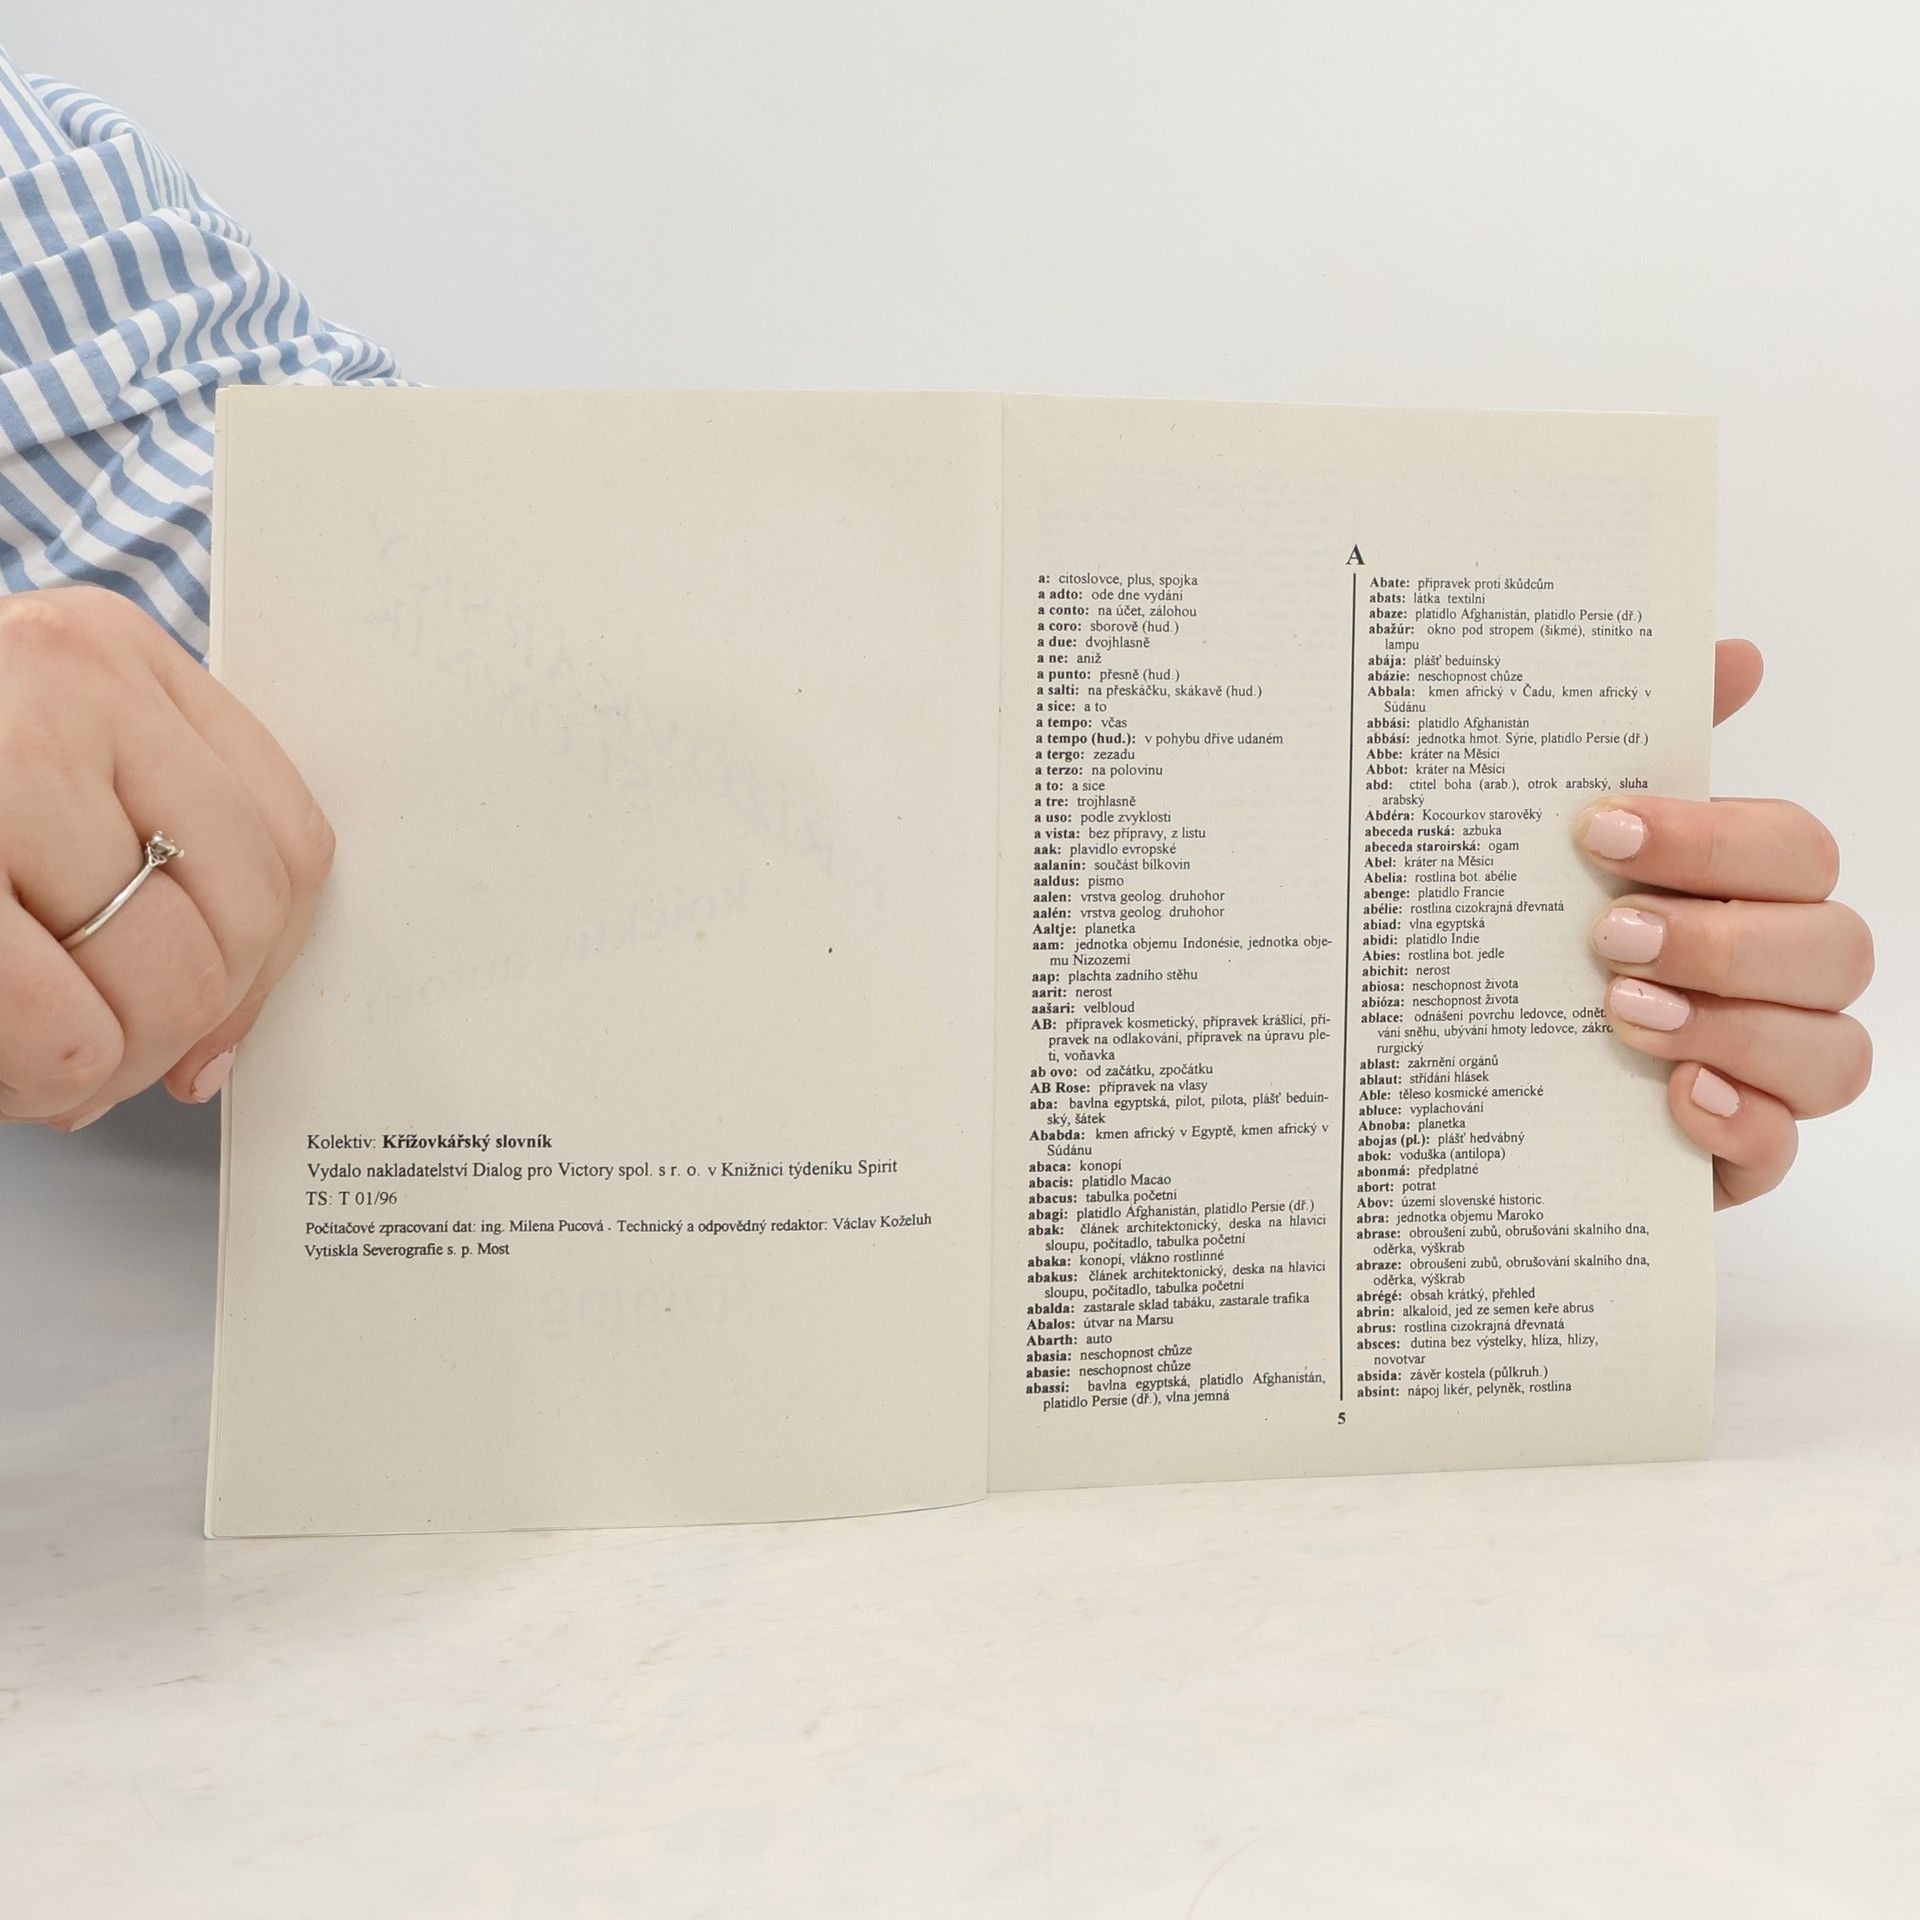 Kolektiv: Křížovkářský slovník
Vydalo nakladatelství Dialog pro Victory spol. s r. o. v Knižnici týdeníku Spirit
TS: T 01/96
Počítačové zpracovaní dat: ing. Milena Pucová - Technický a odpovědný redaktor: Václav Koželuh
Vytiskla Severografie s. p. Most
A
a: citoslovce, plus, spojka
a adto: ode dne vydání
a conto: na účet, zálohou
a coro: sborově (hud.)
a due: dvojhlasně
a ne: aniž
a punto: přesně (hud.)
a salti: na přeskáčku, skákavě (hud.)
a sice: a to
a tempo: včas
a tempo (hud.): v pohybu dříve udaném
a tergo: zezadu
a terzo: na polovinu
a to: a sice
a tre: trojhlasně
a uso: podle zvyklosti
a vista: bez přípravy, z listu
aak: plavidlo evropské
aalanin: součást bílkovin
aaldus: písmo
aalen: vrstva geolog. druhohor
aalén: vrstva geolog. druhohor
Aaltje: planetka
aam: jednotka objemu Indonésie, jednotka obje-
mu Nizozemí
aap: plachta zadního stěhu
aarit: nerost
aašari: velbloud
AB: přípravek kosmetický, přípravek krášlící, pří-
pravek na odlakování, přípravek na úpravu ple-
ti, voňavka
ab ovo: od začátku, zpočátku
AB Rose: přípravek na vlasy
aba: bavlna egyptská, pilot, pilota, plášť beduín-
ský, šátek
Ababda: kmen africký v Egyptě, kmen africký v
Súdánu
abaca: konopí
abacis: platidlo Macao
abacus: tabulka početní
abagi: platidlo Afghanistán, platidlo Persie (dř.)
abak: článek architektonický, deska na hlavici
sloupu, počítadlo, tabulka početní
abaka: konopí, vlákno rostlinné
abakus: článek architektonický, deska na hlavici
sloupu, počítadlo, tabulka početní
abalda: zastarale sklad tabáku, zastarale trafika
Abalos: útvar na Marsu
Abarth: auto
abasia: neschopnost chůze
abasie: neschopnost chůze
abassi: bavlna egyptská, platidlo Afghanistán,
platidlo Persie (dř.), vlna jemná
Abate: přípravek proti škůdcům
abats: látka textilní
abaze: platidlo Afghanistán, platidlo Persie (dř.)
abažúr: okno pod stropem (šikmé), stínítko na
lampu
abája: plášť beduínský
abázie: neschopnost chůze
Abbala: kmen africký v Čadu, kmen africký v
Súdánu
abbási: platidlo Afghanistán
abbásí: jednotka hmot. Sýrie, platidlo Persie (dř.)
Abbe: kráter na Měsíci
Abbot: kráter na Měsíci
abd: ctitel boha (arab.), otrok arabský, sluha
arabský
Abdéra: Kocourkov starověký
abeceda ruská: azbuka
abeceda staroirská: ogam
Abel: kráter na Měsíci
Abelia: rostlina bot. abélie
abenge: platidlo Francie
abélie: rostlina cizokrajná dřevnatá
abiad: vlna egyptská
abidi: platidlo Indie
Abies: rostlina bot. jedle
abichit: nerost
abiosa: neschopnost života
abióza: neschopnost života
ablace: odnášení povrchu ledovce,
vání sněhu, ubývání hmoty ledovce,
rurgický
ablast: zakrnění orgánů
ablaut: střídání hlásek
Able: těleso kosmické americké
abluce: vyplachování
Abnoba: planetka
abojas (pl.): plášť hedvábný
abok: voduška (antilopa)
abonmá: předplatné
abort: potrat
Abov: území slovenské historic.
abra: jednotka objemu Maroko
abrase: obroušení zubů, obrušování skalního dna,
oděrka, výškrab
abraze: obroušení zubů, obrušování skalního dna,
oděrka, výškrab
abrégé: obsah krátký, přehled
abrin: alkaloid, jed ze semen keře abrus
abrus: rostlina cizokrajná dřevnatá
absces: dutina bez výstelky, hlíza, hlízy,
novotvar
absida: závěr kostela (půlkruh.)
absint: nápoj likér, pelyněk, rostlina
5